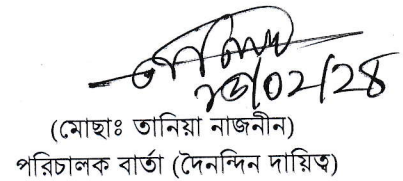 ২৬/০২/২৪
(মোছাঃ তানিয়া নাজনীন)
পরিচালক বার্তা (দৈনন্দিন দায়িত্ব)